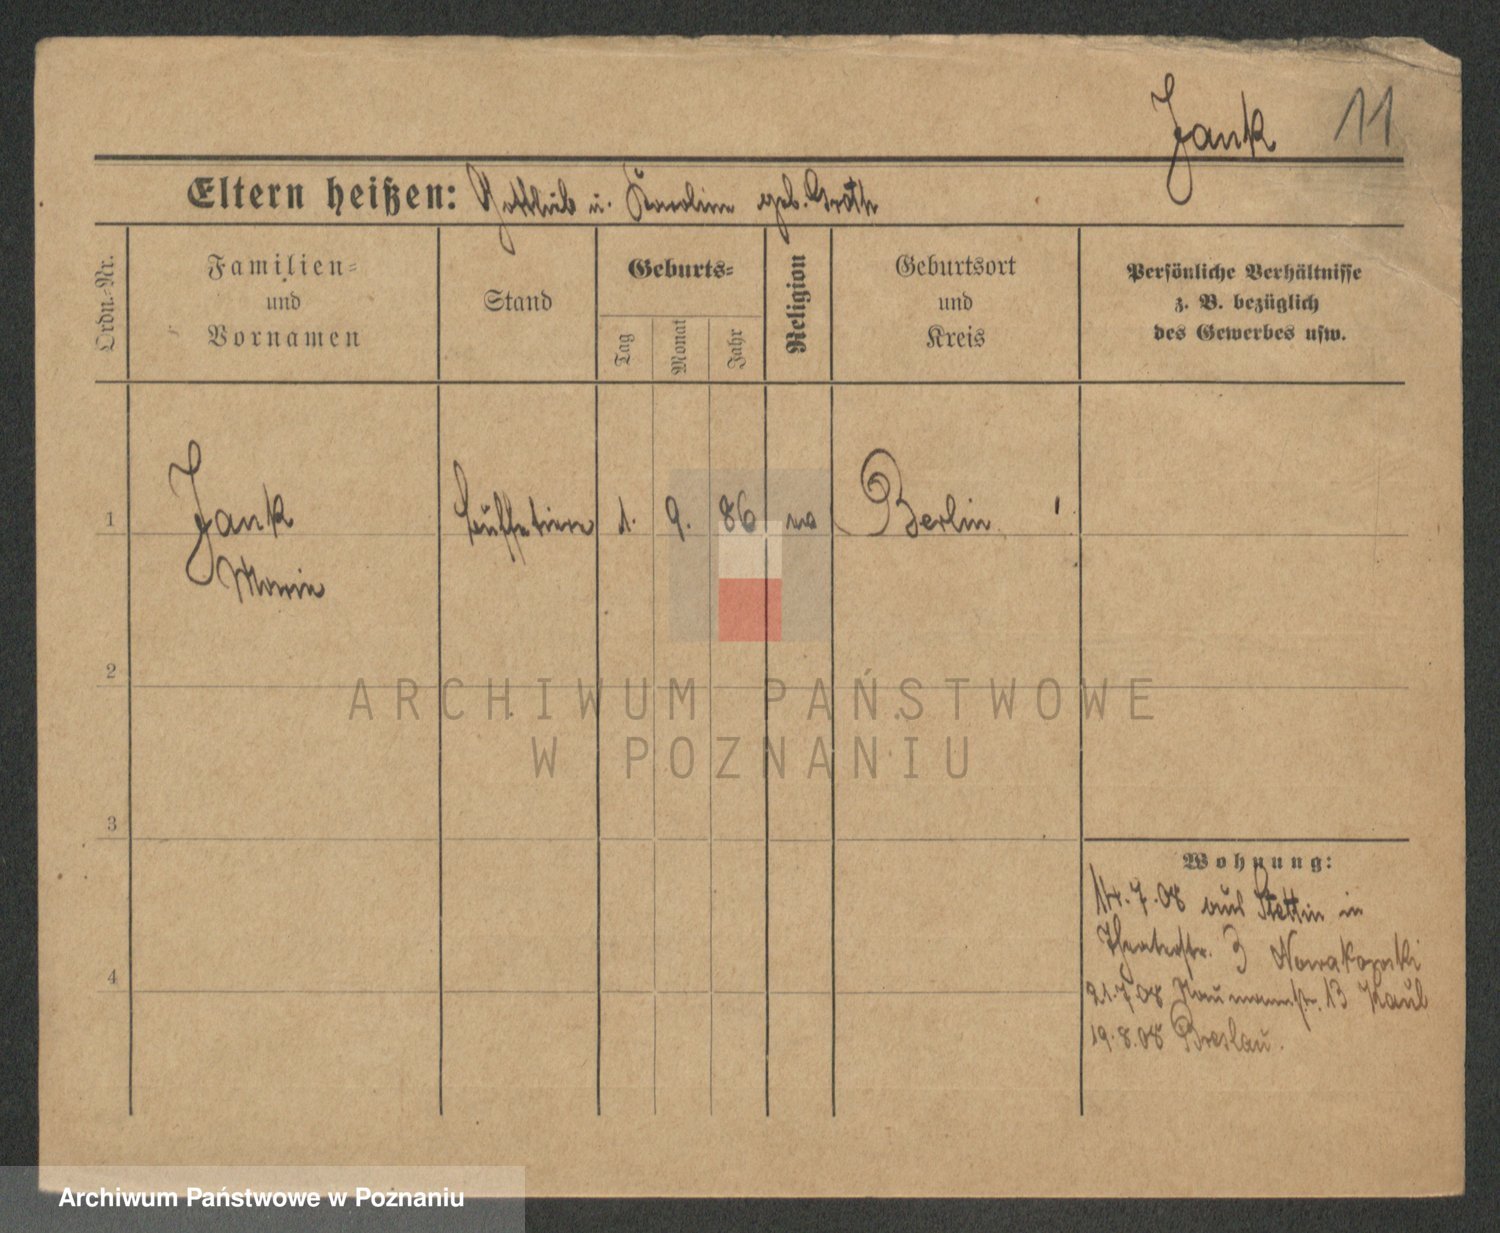 Jank 11
Eltern heißen: Gottlieb u. Karoline geb.
Ordn.-Nr.
Familien-
und
Vornamen
Stand
Geburts-
Tag
Monat
Jahr
Religion
Geburtsort
und
Kreis
Persönliche Verhältnisse
z. B. bezüglich
des Gewerbes usw.
1
Jank
Marie
1. 9. 86
Berlin
2
ARCHIWUM PAŃSTWOWE
W POZNANIU
3
4
Wohnung:
14.7.08 aus Stettin in
Theaterstr. 3 Nowakowski
21.7.08 Naumannstr. 13 Kaul
19.8.08 Breslau.
Archiwum Państwowe w Poznaniu